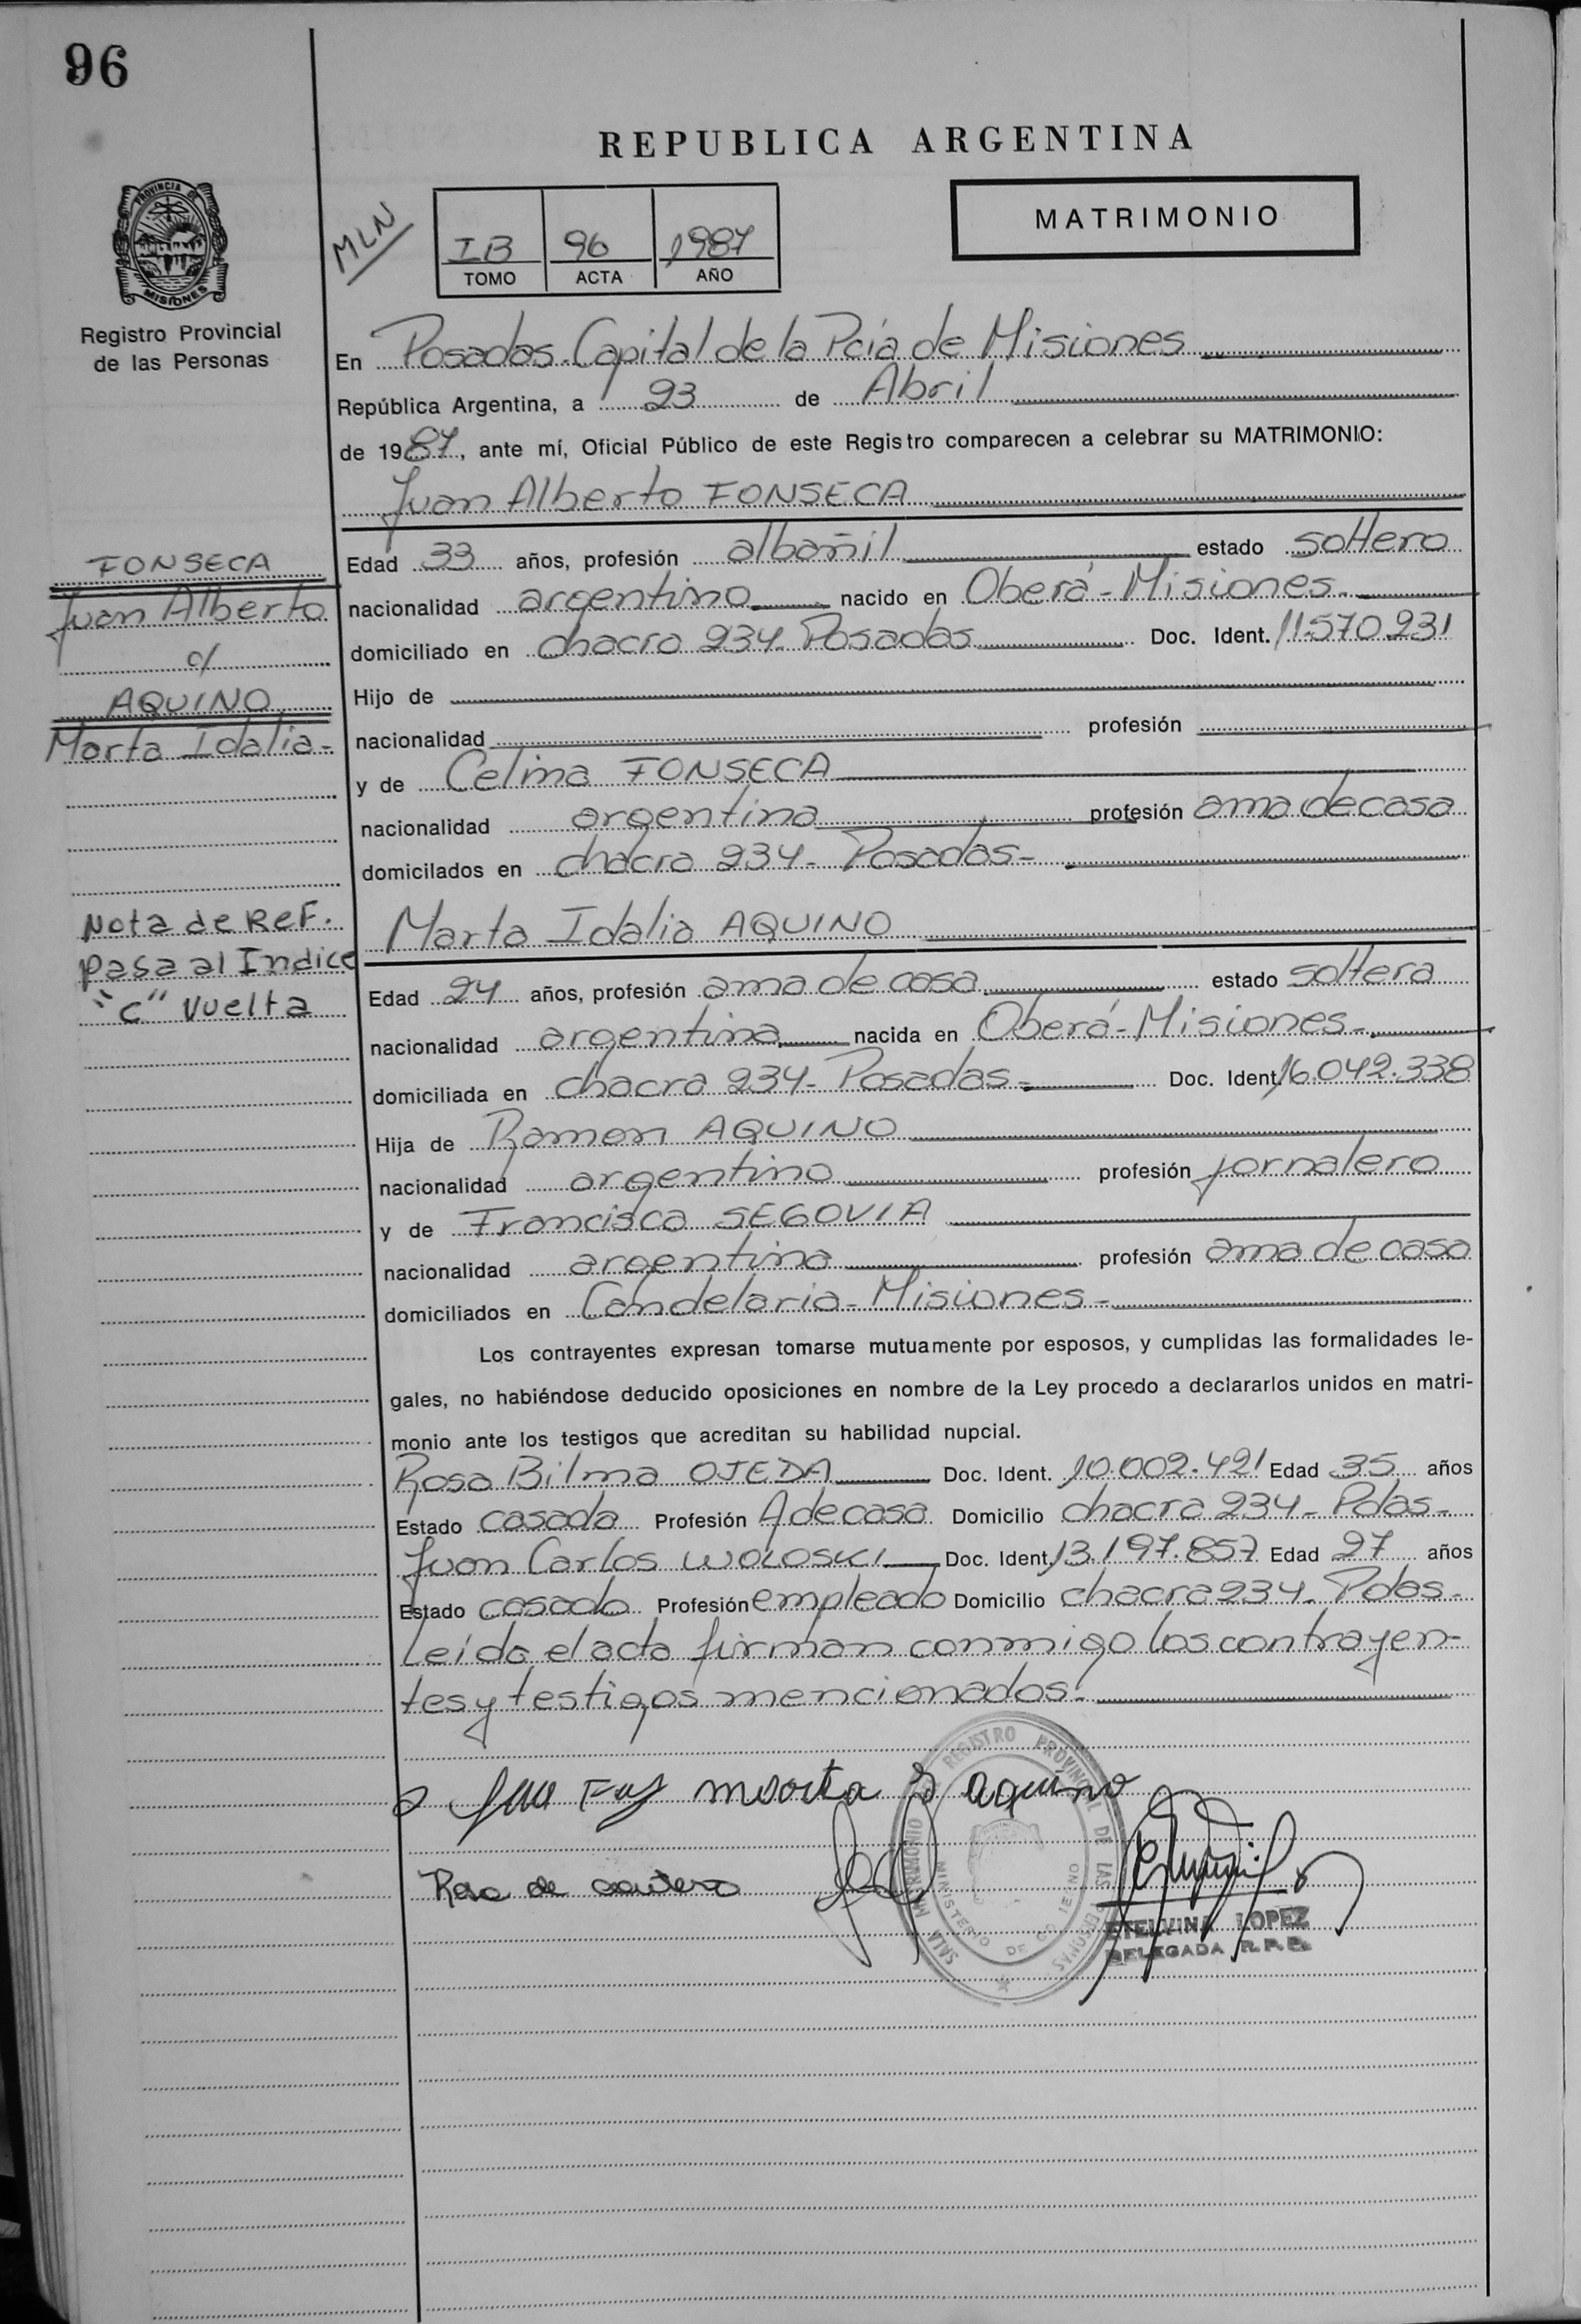 96
REPUBLICA ARGENTINA
PROVINCIA DE
MISIONES
Registro Provincial
de las Personas
MLN
IB 96 1987
TOMO ACTA AÑO
MATRIMONIO
En Posadas-Capital de la Pcia de Misiones
República Argentina, a 23 de Abril
de 1987, ante mí, Oficial Público de este Registro comparecen a celebrar su MATRIMONIO:
Juan Alberto FONSECA
FONSECA
Juan Alberto
c/
AQUINO
Marta Idalia-
Edad 33 años, profesión albañil estado soltero
nacionalidad argentino nacido en Oberá-Misiones-
domiciliado en chacra 234- Posadas Doc. Ident. 11.570.231
Hijo de
nacionalidad profesión
y de Celima FONSECA
nacionalidad argentina profesión ama de casa
domicilados en chacra 234- Posadas-
Nota de Ref.
Pasa al Indice
"C" Vuelta
Marta Idalia AQUINO
Edad 24 años, profesión ama de casa estado soltera
nacionalidad argentina nacida en Oberá-Misiones-
domiciliada en chacra 234- Posadas- Doc. Ident. 16.042.338
Hija de Ramon AQUINO
nacionalidad argentino profesión jornalero
y de Francisca SEGOVIA
nacionalidad argentina profesión ama de casa
domiciliados en Candelaria-Misiones-
Los contrayentes expresan tomarse mutuamente por esposos, y cumplidas las formalidades le-
gales, no habiéndose deducido oposiciones en nombre de la Ley procedo a declararlos unidos en matri-
monio ante los testigos que acreditan su habilidad nupcial.
Rosa Bilma OJEDA Doc. Ident. 10.002.421 Edad 35 años
Estado casada Profesión A de casa Domicilio chacra 234- Pdas-
Juan Carlos WOLOSKI Doc. Ident. 13.197.857 Edad 27 años
Estado casado Profesión empleado Domicilio chacra 234- Pdas-
Leída el acta firman conmigo los contrayen-
tes y testigos mencionados-
marta I aquino
Rosa de
REGISTRO PROVINCIAL DE LAS PERSONAS
SALA MATRIMONIO
MINISTERIO DE GOBIERNO
ETELVINA LOPEZ
DELEGADA R.P.P.